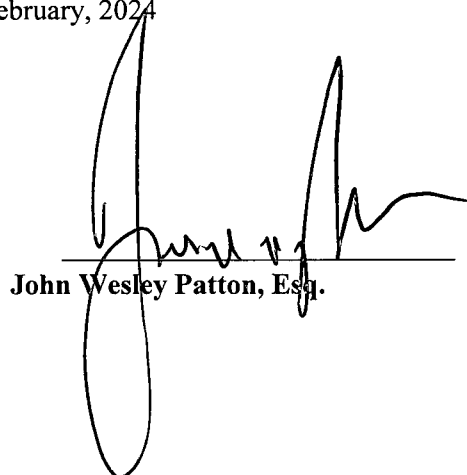 ebruary, 2024
John Wesley Patton, Esq.